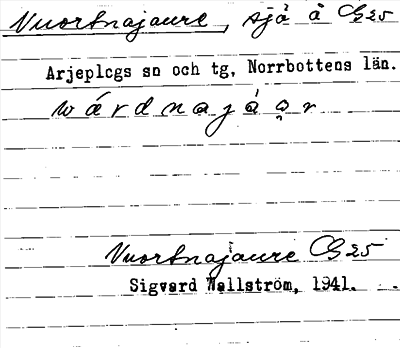 Vuortnajaure, sjö å G25
Arjeplogs sn och tg, Norrbottens län.
wárdnajàǫr
Vuortnajaure G25
Sigvard Wallström, 1941.